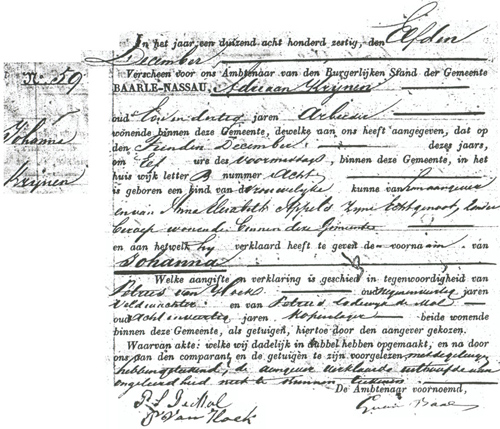 No. 59
Johanna
Krijnen
In het jaar een duizend acht honderd zestig, den Elfden
December
Verscheen voor ons Ambtenaar van den Burgerlijken Stand der Gemeente
BAARLE-NASSAU, Adriaan Krijnen
oud jaren Arbeider
wonende binnen deze Gemeente, dewelke aan ons heeft aangegeven, dat op
den Tienden December dezes jaars,
om Elf ure des voormiddags, binnen deze Gemeente, in het
huis wijk letter B nummer Acht
is geboren een kind van vrouwelijke kunne van hem aangever
en van Anna Elisabeth Appels zijne Echtgenoot, zonder
beroep wonende binnen deze Gemeente
en aan hetwelk hij verklaard heeft te geven de voornaam van
Johanna
Welke aangifte en verklaring is geschied in tegenwoordigheid van
Petrus van Hoek oud jaren
Veldwachter en van Petrus Lodewijk de Mol
oud jaren beide wonende
binnen deze Gemeente, als getuigen, hiertoe door den aangever gekozen.
Waarvan akte: welke wij dadelijk in dubbel hebben opgemaakt, en na door
ons aan den comparant en de getuigen te zijn voorgelezen, met de getuigen
hebben geteekend, de aangever verklaarde uit hoofde van
ongeleerdheid niet te kunnen teekenen.
De Ambtenaar voornoemd,
P. L. De Mol
P. Van Hoek